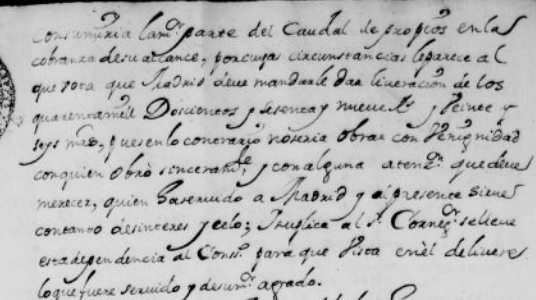 Consumiria la mr. parte del Caudal de propios en las
cobranza desu alcance, por cuyas circunstancias leparece al
que vota que Madrid deve mandarle dar liveracion de los
quarenta mil Doscientos y sesenta y nueve Rs. y Veinte y
seys mrs, pues en lo contrario no seria obrar con Venignidad
con quien obrò sinceramte, y con alguna atenzn. que deve
merecer, quien ha servido a Madrid y al presente sirve
con tanto desinteres y celo; Suplica al Sr. Corregr. se lleve
esta dependencia al Consº. para que Vista en èl delivere
lo que fuere servido y de su mr. agrado.